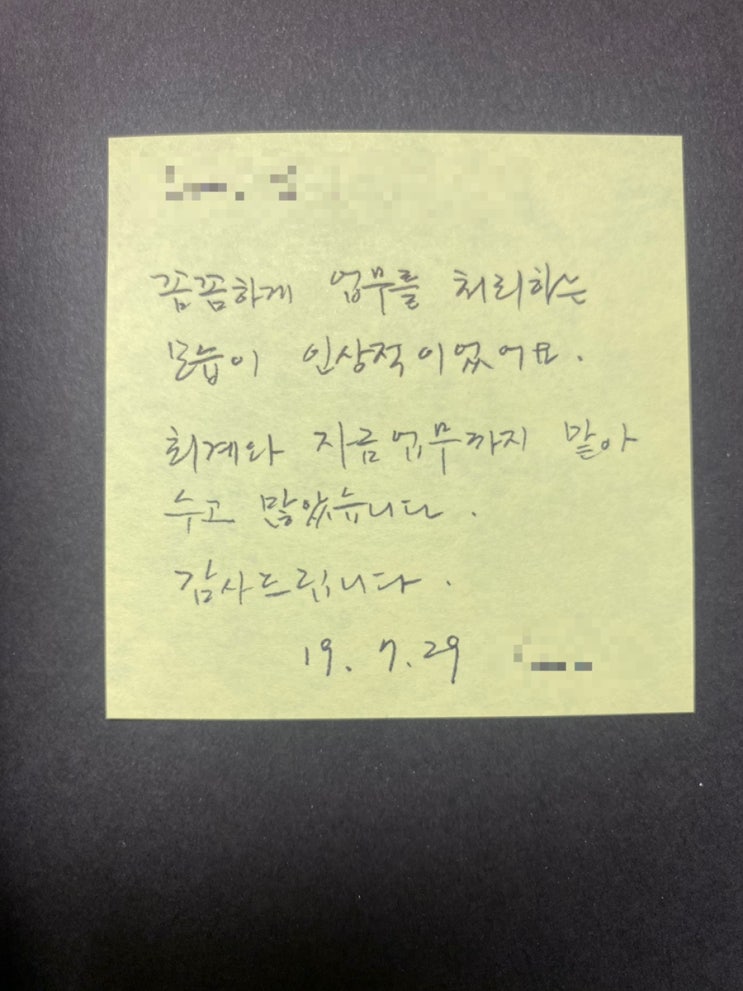 꼼꼼하게 업무를 처리하는
모습이 인상적이었어요.
회계와 지금업무까지 맡아
수고 많았습니다.
감사드립니다.
19. 7. 29